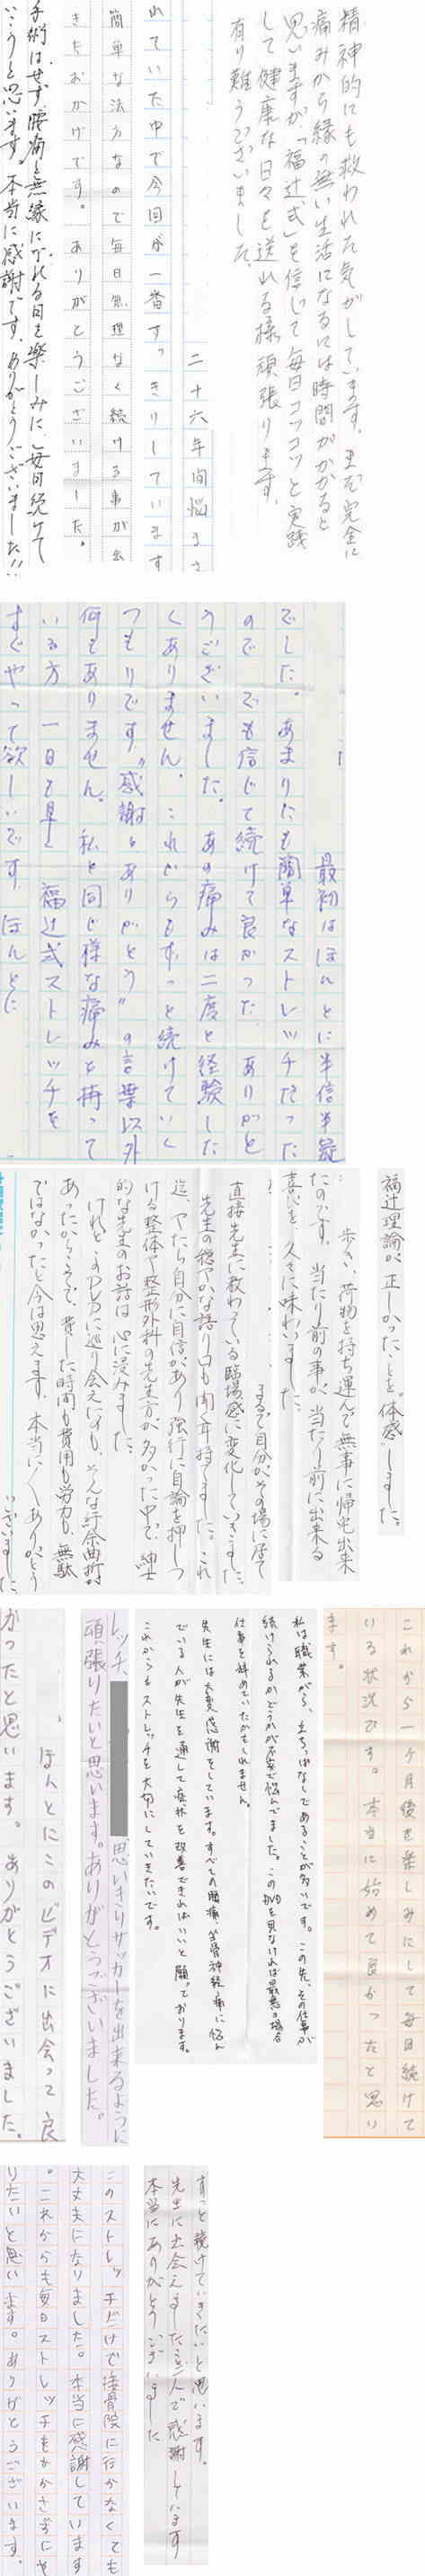 精神的にも救われた気がしています。まだ完全に
痛みから縁の無い生活になるには時間がかかると
思いますが、「福辻式」を信じて毎日コツコツと実践
して健康な日々を送れる様頑張ります。
有り難うございました。
二十六年間悩まさ
れていた中で今回が一番すっきりしています
簡単な法方なので毎日無理なく続ける事が出
きたおかげです。ありがとうございました。
手術はせず、腰痛と無縁になれる日を楽しみに、毎日続けて
いこうと思います。本当に感謝です。ありがとうございました!!
最初はほんとに半信半疑
でした。あまりにも簡単なストレッチだった
ので でも信じて続けて良かった ありがと
うございました。あの痛みは二度と経験した
くありません。これからもずっと続けていく
つもりです。"感謝とありがとう"の言葉以外
何もありません。私と同じ様な痛みを持って
いる方 一日も早く 福辻式ストレッチを
すぐやって欲しいです ほんとに
福辻理論が正しかったことを"体感"しました。
歩き、荷物を持ち運んで無事に帰宅出来
たのです。当たり前の事が、当たり前に出来る
喜びを、久々に味わいました。
まるで自分がその場に居て
直接先生に教わっている臨場感に変化していきました。
先生の穏やかな語り口も聞き心地
迄、やたら自分に自信があり強行に自論を押しつ
ける整体や整形外科の先生方が多かった中で、紳士
的な先生のお話は心に染みました。
けれどこのDVDに巡り会えたのも、そんな紆余曲折が
あったからこそで、費した時間も費用も労力も、無駄
ではなかったと今は思えます。本当に〱ありがとう
ございました。
これから一ヶ月後を楽しみにして毎日続けて
いる状況です。本当に始めて良かったと思い
ます。
私は職業がら、立ちっぱなしであることが多いです。この先、その仕事が
続けられるかどうかが不安で悩んでました。このDVDを見なければ最悪の場合
仕事を辞めていたかもしれません。
先生には大変感謝をしています。すべての腰痛、坐骨神経痛に悩ん
でいる人が先生を通して症状を改善できればいいと願っております。
これからもストレッチを大切にしていきたいです。
レッチ、 思いきりサッカーを出来るように
頑張りたいと思います。ありがとうございました。
ほんとにこのビデオに出会って良
かったと思います。ありがとうございました。
ずっと続けていきたいと思います。
先生に出会えました事 感謝しています
本当にありがとうございました
このストレッチだけで接骨院に行かなくても
大丈夫になりました。本当に感謝しています
。これからも毎日ストレッチをかかさずにや
りたいと思います。ありがとうございます。